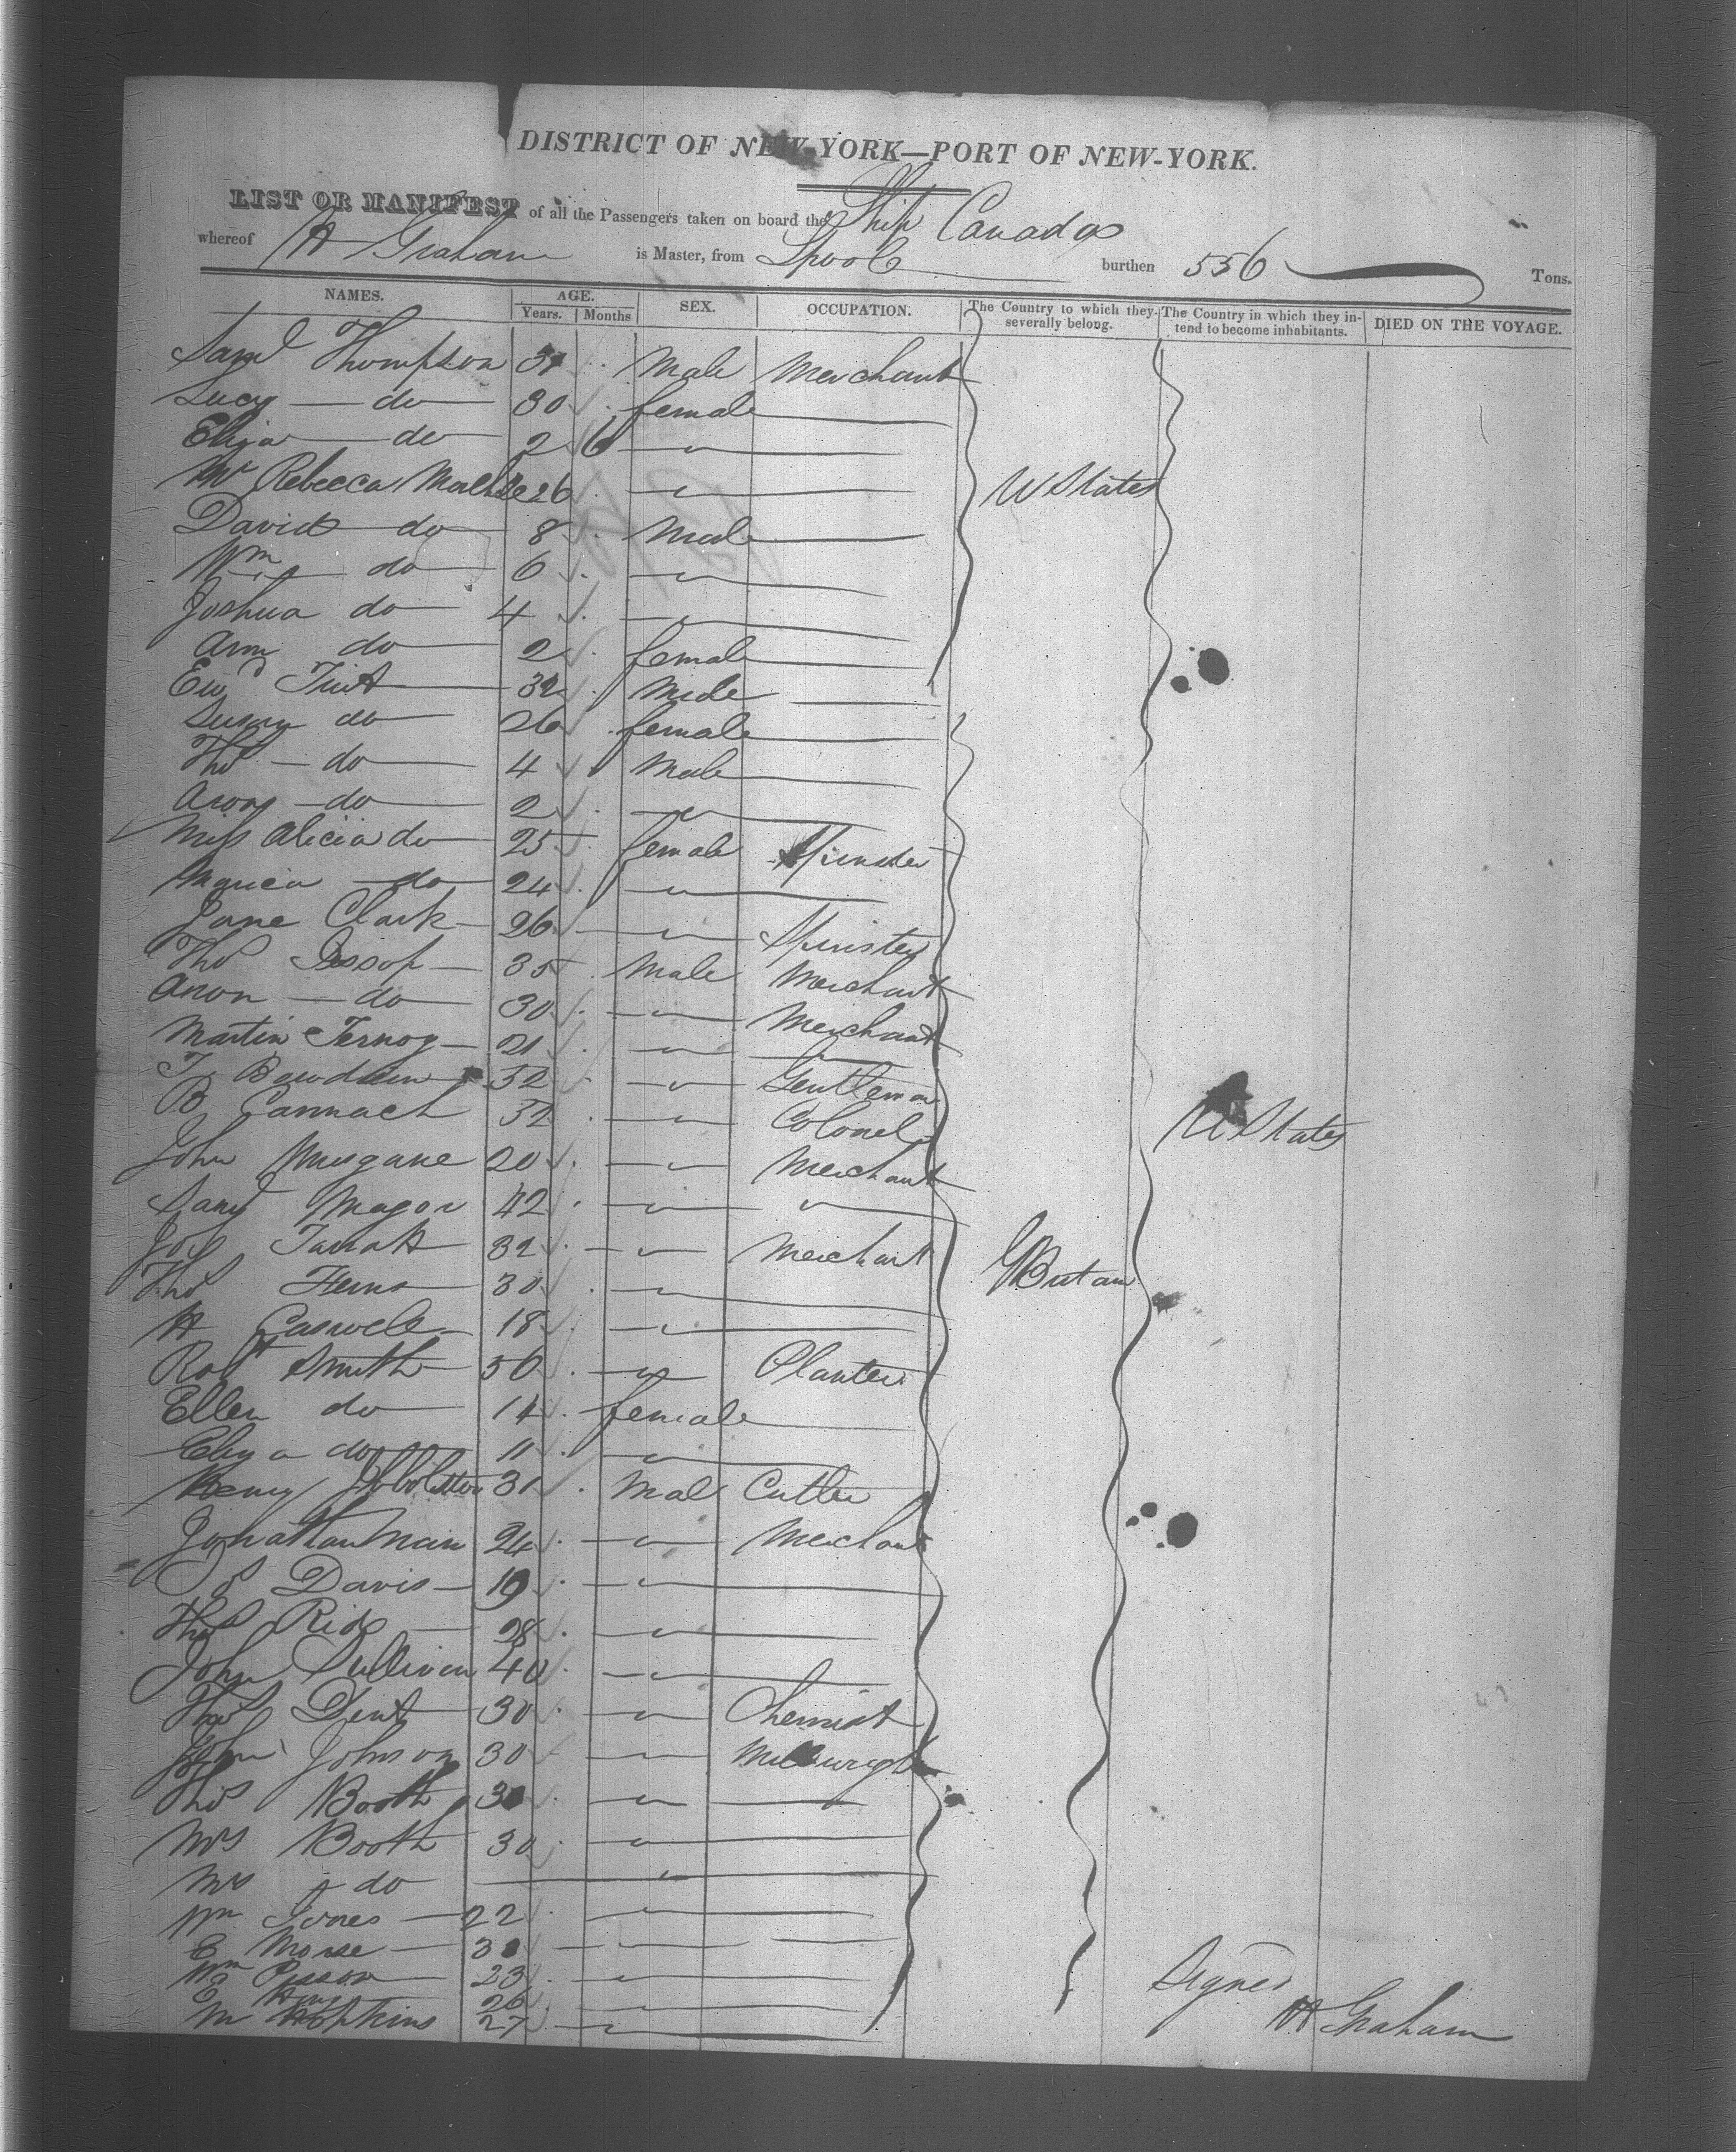 DISTRICT OF NEW-YORK—PORT OF NEW-YORK.
LIST OR MANIFEST of all the Passengers taken on board the Ship Canada
whereof H Graham is Master, from Lpool burthen 556 Tons.
NAMES. AGE. SEX. OCCUPATION. The Country to which they severally belong. The Country in which they intend to become inhabitants. DIED ON THE VOYAGE.
Years. Months
Saml Thompson Male Merchant
Lucy do 30 female
Eliza do 2 6 "
Mrs Rebecca 26 " U States
David do 8 Male
Wm do 6 "
Joshua do 4 "
Ann do 2 female
Ewd 32 Male
Susan do 26 female
Thos do 4 Male
do 2 "
Miss Alicia do 25 female Spinster
Maria do 24 "
Jane Clark 26 " Spinster
Thos Jessop 35 Male Merchant
Aron do 30 " Merchant
Martin 21 " "
T. 32 " Gentleman
B 32 " Colonel U States
John 20 " Merchant
Saml Magor 42 " "
Jos 32 " Merchant
Thos 30 " G Britain
H Caswell 18 "
Robt Smith 50 " Planter
Ellen do 14 female
Eliza do 11 "
Henry 31 Male Cutler
Jonathan 24 " Merchant
Davis 19 "
Thos 28 "
John Sullivan 40 "
Thos Dent 30 " Chemist
John Johnson 30 " Millwright
Thos Booth "
Mrs Booth 30 "
Mrs do "
Wm Jones 22 "
E Morse "
Wm 23 " Signed
E 26 "
M Hopkins 27 " H Graham